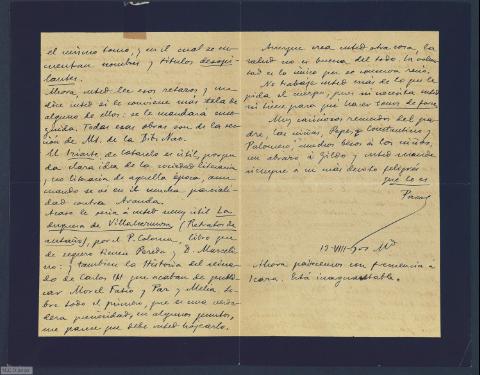 el mismo tomo, y en el cual se en-
cuentran nombres y títulos desopi-
lantes.
Ahora usted lee esos retazos, y me
dice usted si le conviene más tela de
alguno de ellos: se le mandará ense-
guida. Todas esas obras son de la sec-
ción de Ms. de la Bib. Nac.
El Iriarte, de Cotarelo es útil, porque
da clara idea de la sociedad literaria
y no literaria de aquella época, aun
cuando se ve en él mucha parcial-
idad contra Aranda.
Acaso le sería á usted muy útil La
duquesa de Villahermosa (Retratos de
antaño), por el P. Coloma, libro que
de seguro tienen Pereda y D. Marceli-
no: y también la Historia del reina-
do de Carlos III que acaban de publi-
car Morel Fatio y Paz y Melia so-
bre todo el primero, que es una verda-
dera preciosidad, en algunos puntos,
me parece que debe usted hojearlo.
Aunque crea usted otra cosa, la
salud no es buena del todo. La volun-
tad es lo único que se conserva recio.
No trabaje usted más de lo que le
pida el cuerpo, pues ni necesita usted
ni tiene para qué hacer tours de force.
Mis cariñosos recuerdos del pa-
dre, las niñas, Pepe, Constantino y
Palomero; muchos besos á los niños,
un abrazo á Gildo y usted mande
siempre a su más devoto
que lo es
12-VIII-907 Md
Ahora paseamos con frecuencia a
Icara. Está inaguantable.